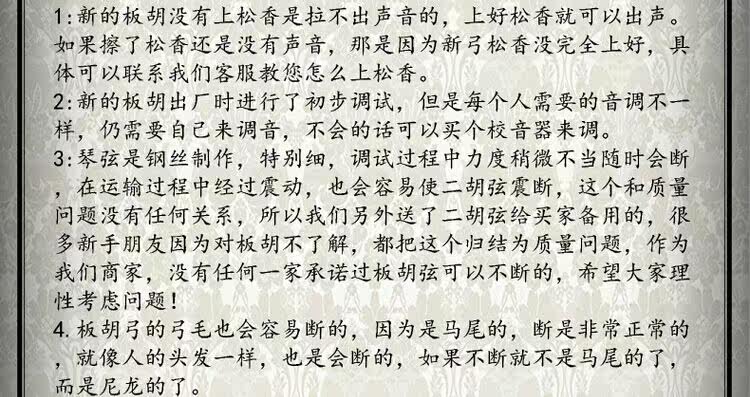 1:新的板胡没有上松香是拉不出声音的，上好松香就可以出声。
如果擦了松香还是没有声音，那是因为新弓松香没完全上好，具
体可以联系我们客服教您怎么上松香。
2:新的板胡出厂时进行了初步调试，但是每个人需要的音调不一
样，仍需要自己来调音，不会的话可以买个校音器来调。
3:琴弦是钢丝制作，特别细，调试过程中力度稍微不当随时会断
，在运输过程中经过震动，也会容易使二胡弦震断，这个和质量
问题没有任何关系，所以我们另外送了二胡弦给买家备用的，很
多新手朋友因为对板胡不了解，都把这个归结为质量问题，作为
我们商家，没有任何一家承诺过板胡弦可以不断的，希望大家理
性考虑问题！
4.板胡弓的弓毛也会容易断的，因为是马尾的，断是非常正常的
，就像人的头发一样，也是会断的，如果不断就不是马尾的了，
而是尼龙的了。